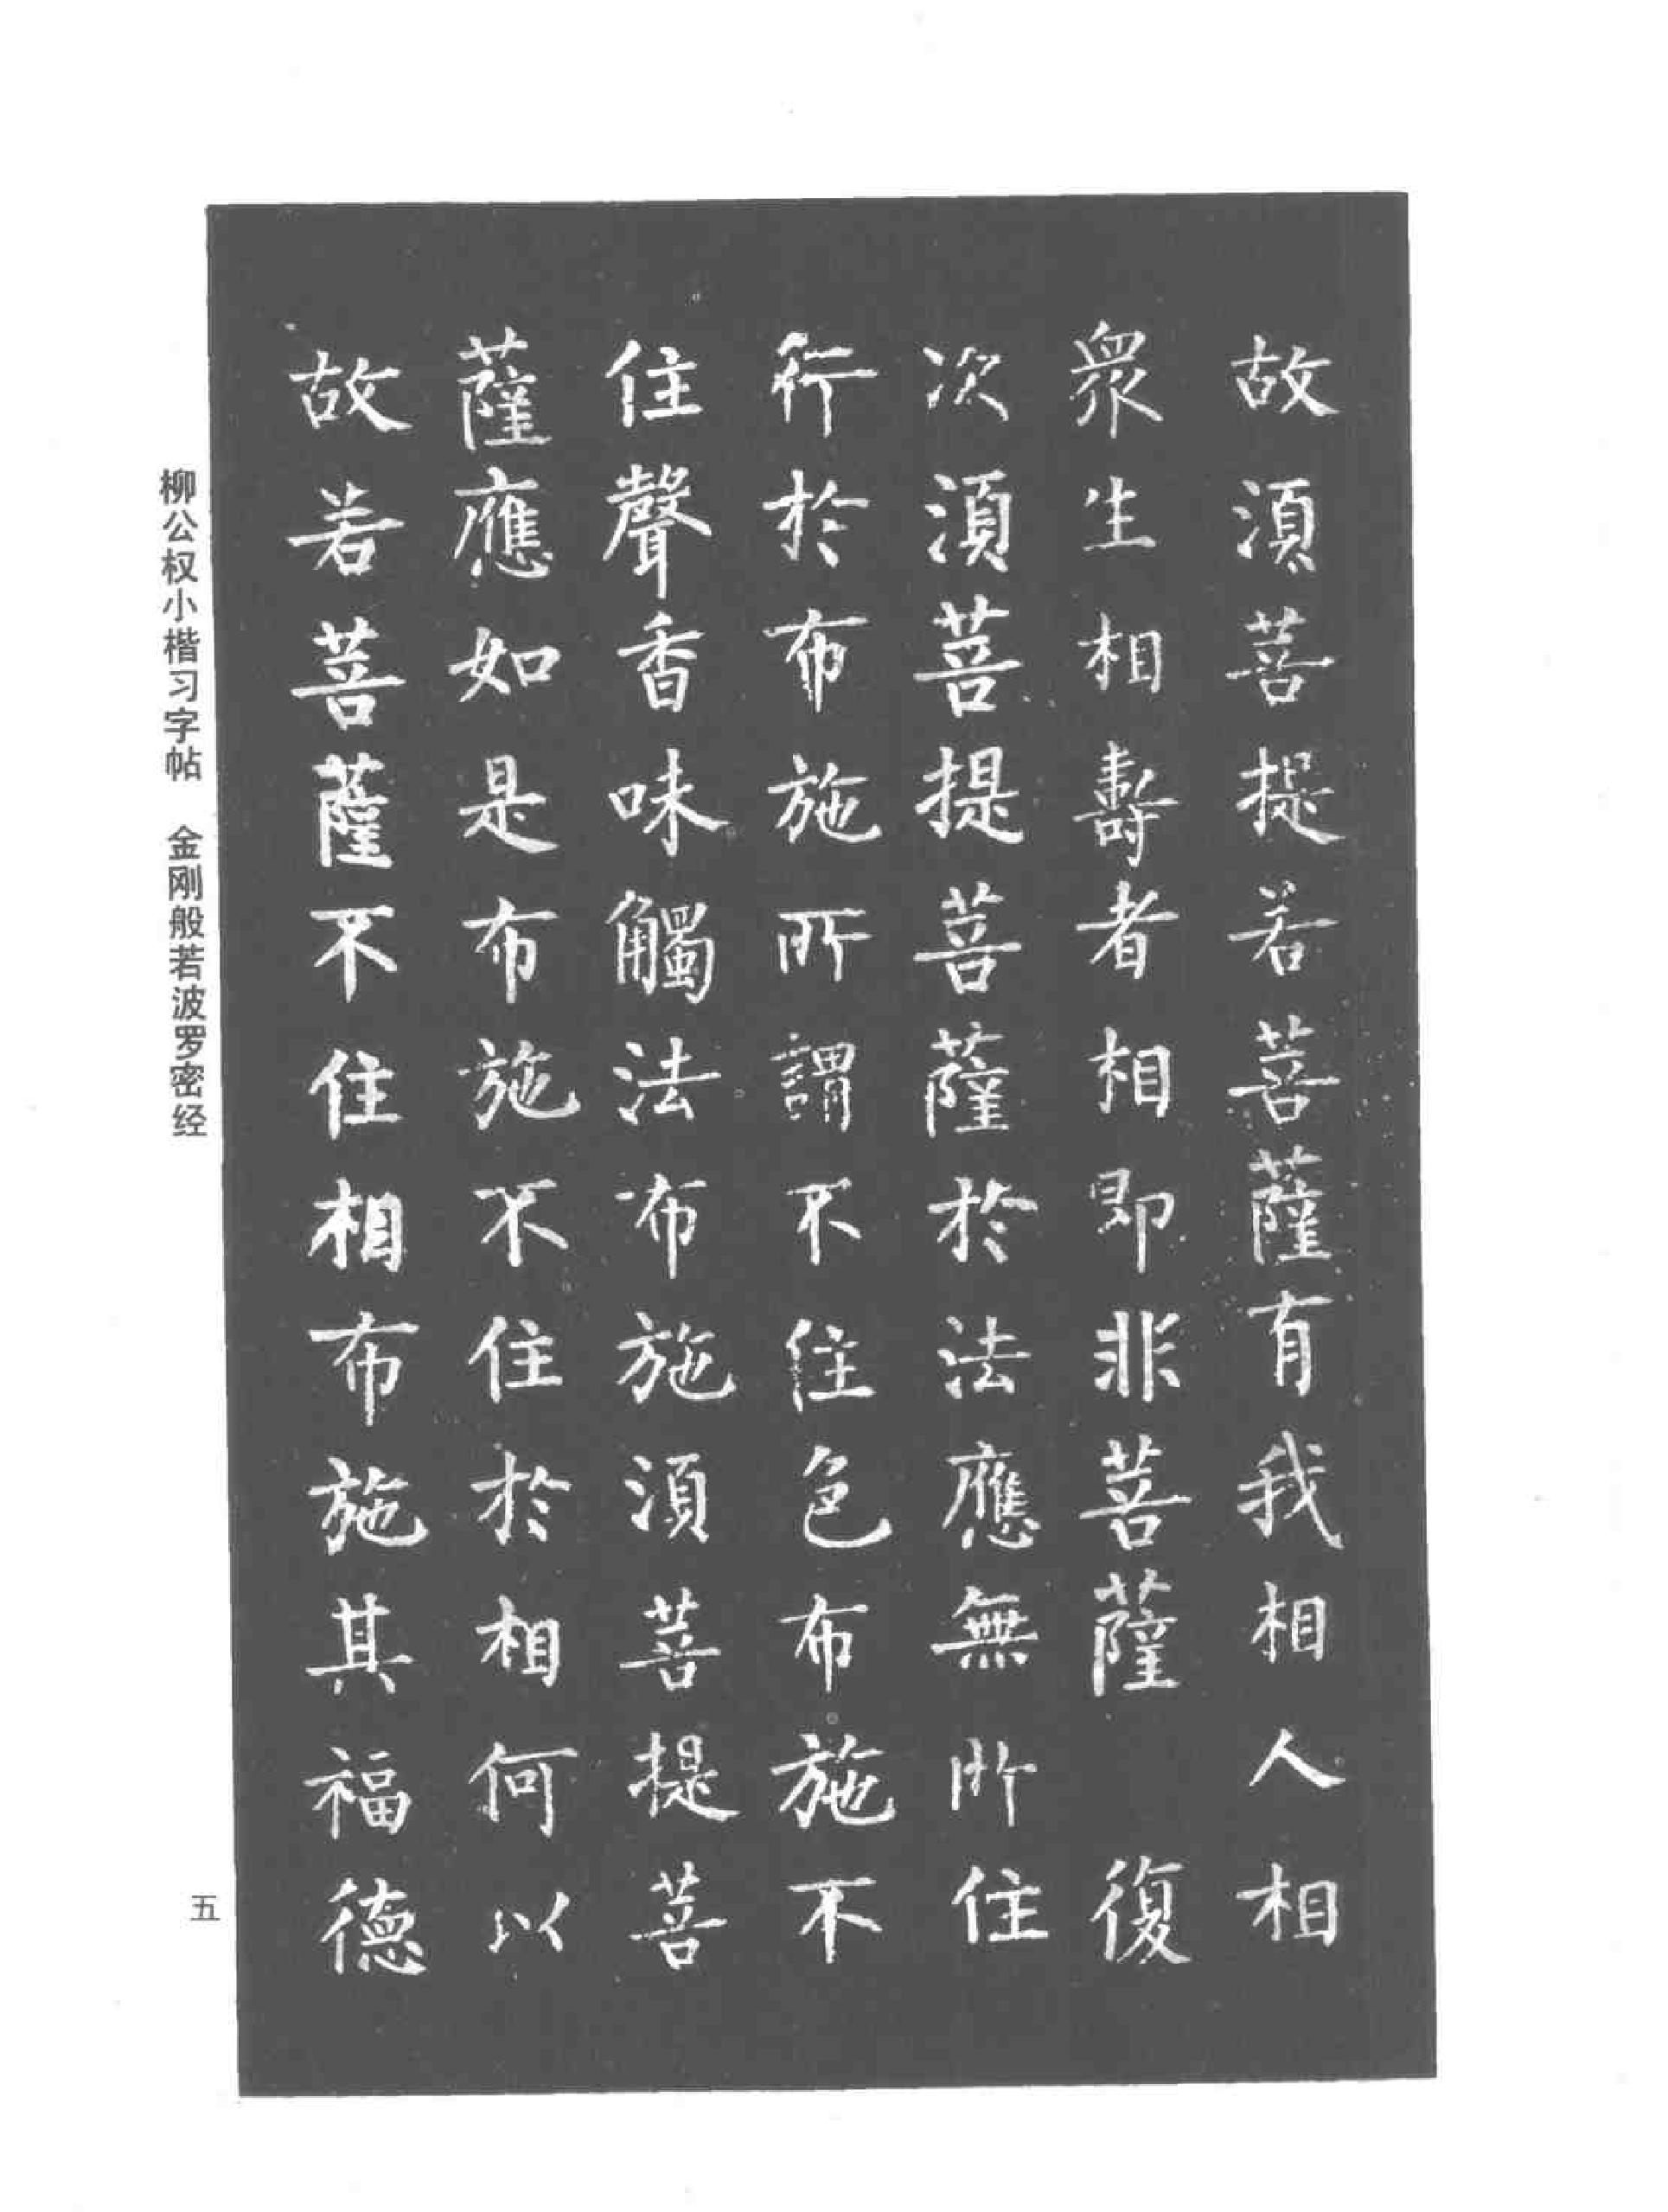 故須菩提若菩薩有我相人相
眾生相壽者相即非菩薩　復
次須菩提菩薩於法應無所住
行於布施所謂不住色布施不
住聲香味觸法布施須菩提菩
薩應如是布施不住於相何以
故若菩薩不住相布施其福德
柳公权小楷习字帖　金刚般若波罗密经
五